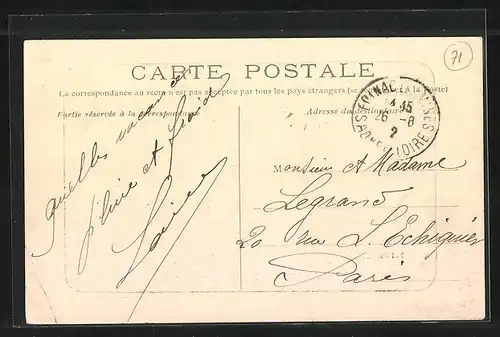 71
CARTE POSTALE
La correspondance au recto n'est pas acceptée par tous les pays étrangers (se renseigner à la poste)
Partie réservée à la correspondance
Adresse du destinataire
EPINAC
SAONE-ET-LOIRE
15
26 -8
2
quelles vacances
pluie et froid
Monsieur et Madame
Legrand
20 rue L'Echiquier
Paris